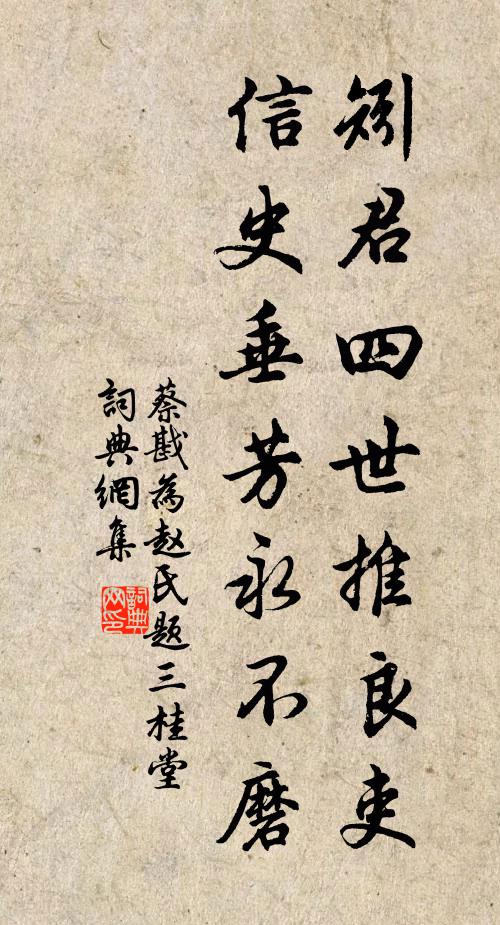 矧君四世推良吏
信史垂芳永不磨
蔡戡為赵氏题三桂堂
詞典網集
詞典网印